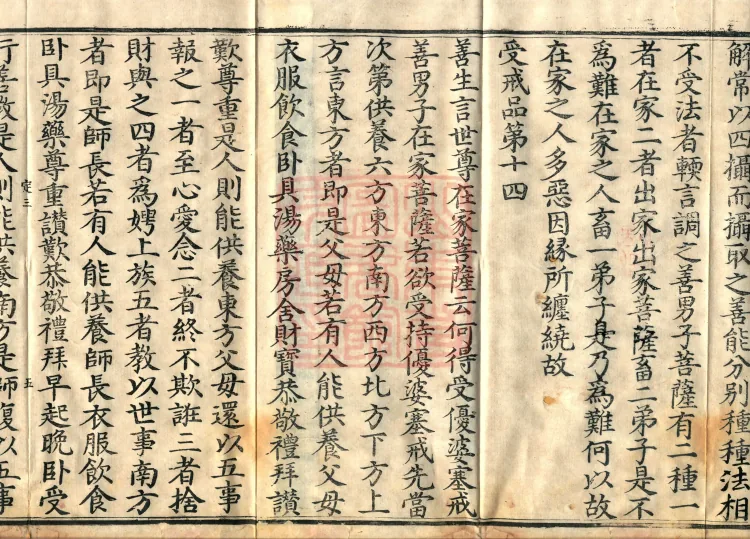 解常以四攝而攝取之善能分別種種法相
不受法者輭言調之善男子菩薩有二種一
者在家二者出家出家菩薩畜二弟子是不
爲難在家之人畜一弟子是乃爲難何以故
在家之人多惡因緣所纏繞故
受戒品第十四
善生言世尊在家菩薩云何得受優婆塞戒
善男子在家菩薩若欲受持優婆塞戒先當
次第供養六方東方南方西方北方下方上
方言東方者即是父母若有人能供養父母
衣服飲食卧具湯藥房舍財寶恭敬禮拜讃
歎尊重是人則能供養東方父母還以五事
報之一者至心愛念二者終不欺誑三者捨
財與之四者爲娉上族五者教以世事南方
者即是師長若有人能供養師長衣服飲食
卧具湯藥尊重讃歎恭敬禮拜早起晚卧受
定三 五
行善教是人則能供養南方是師復以五事